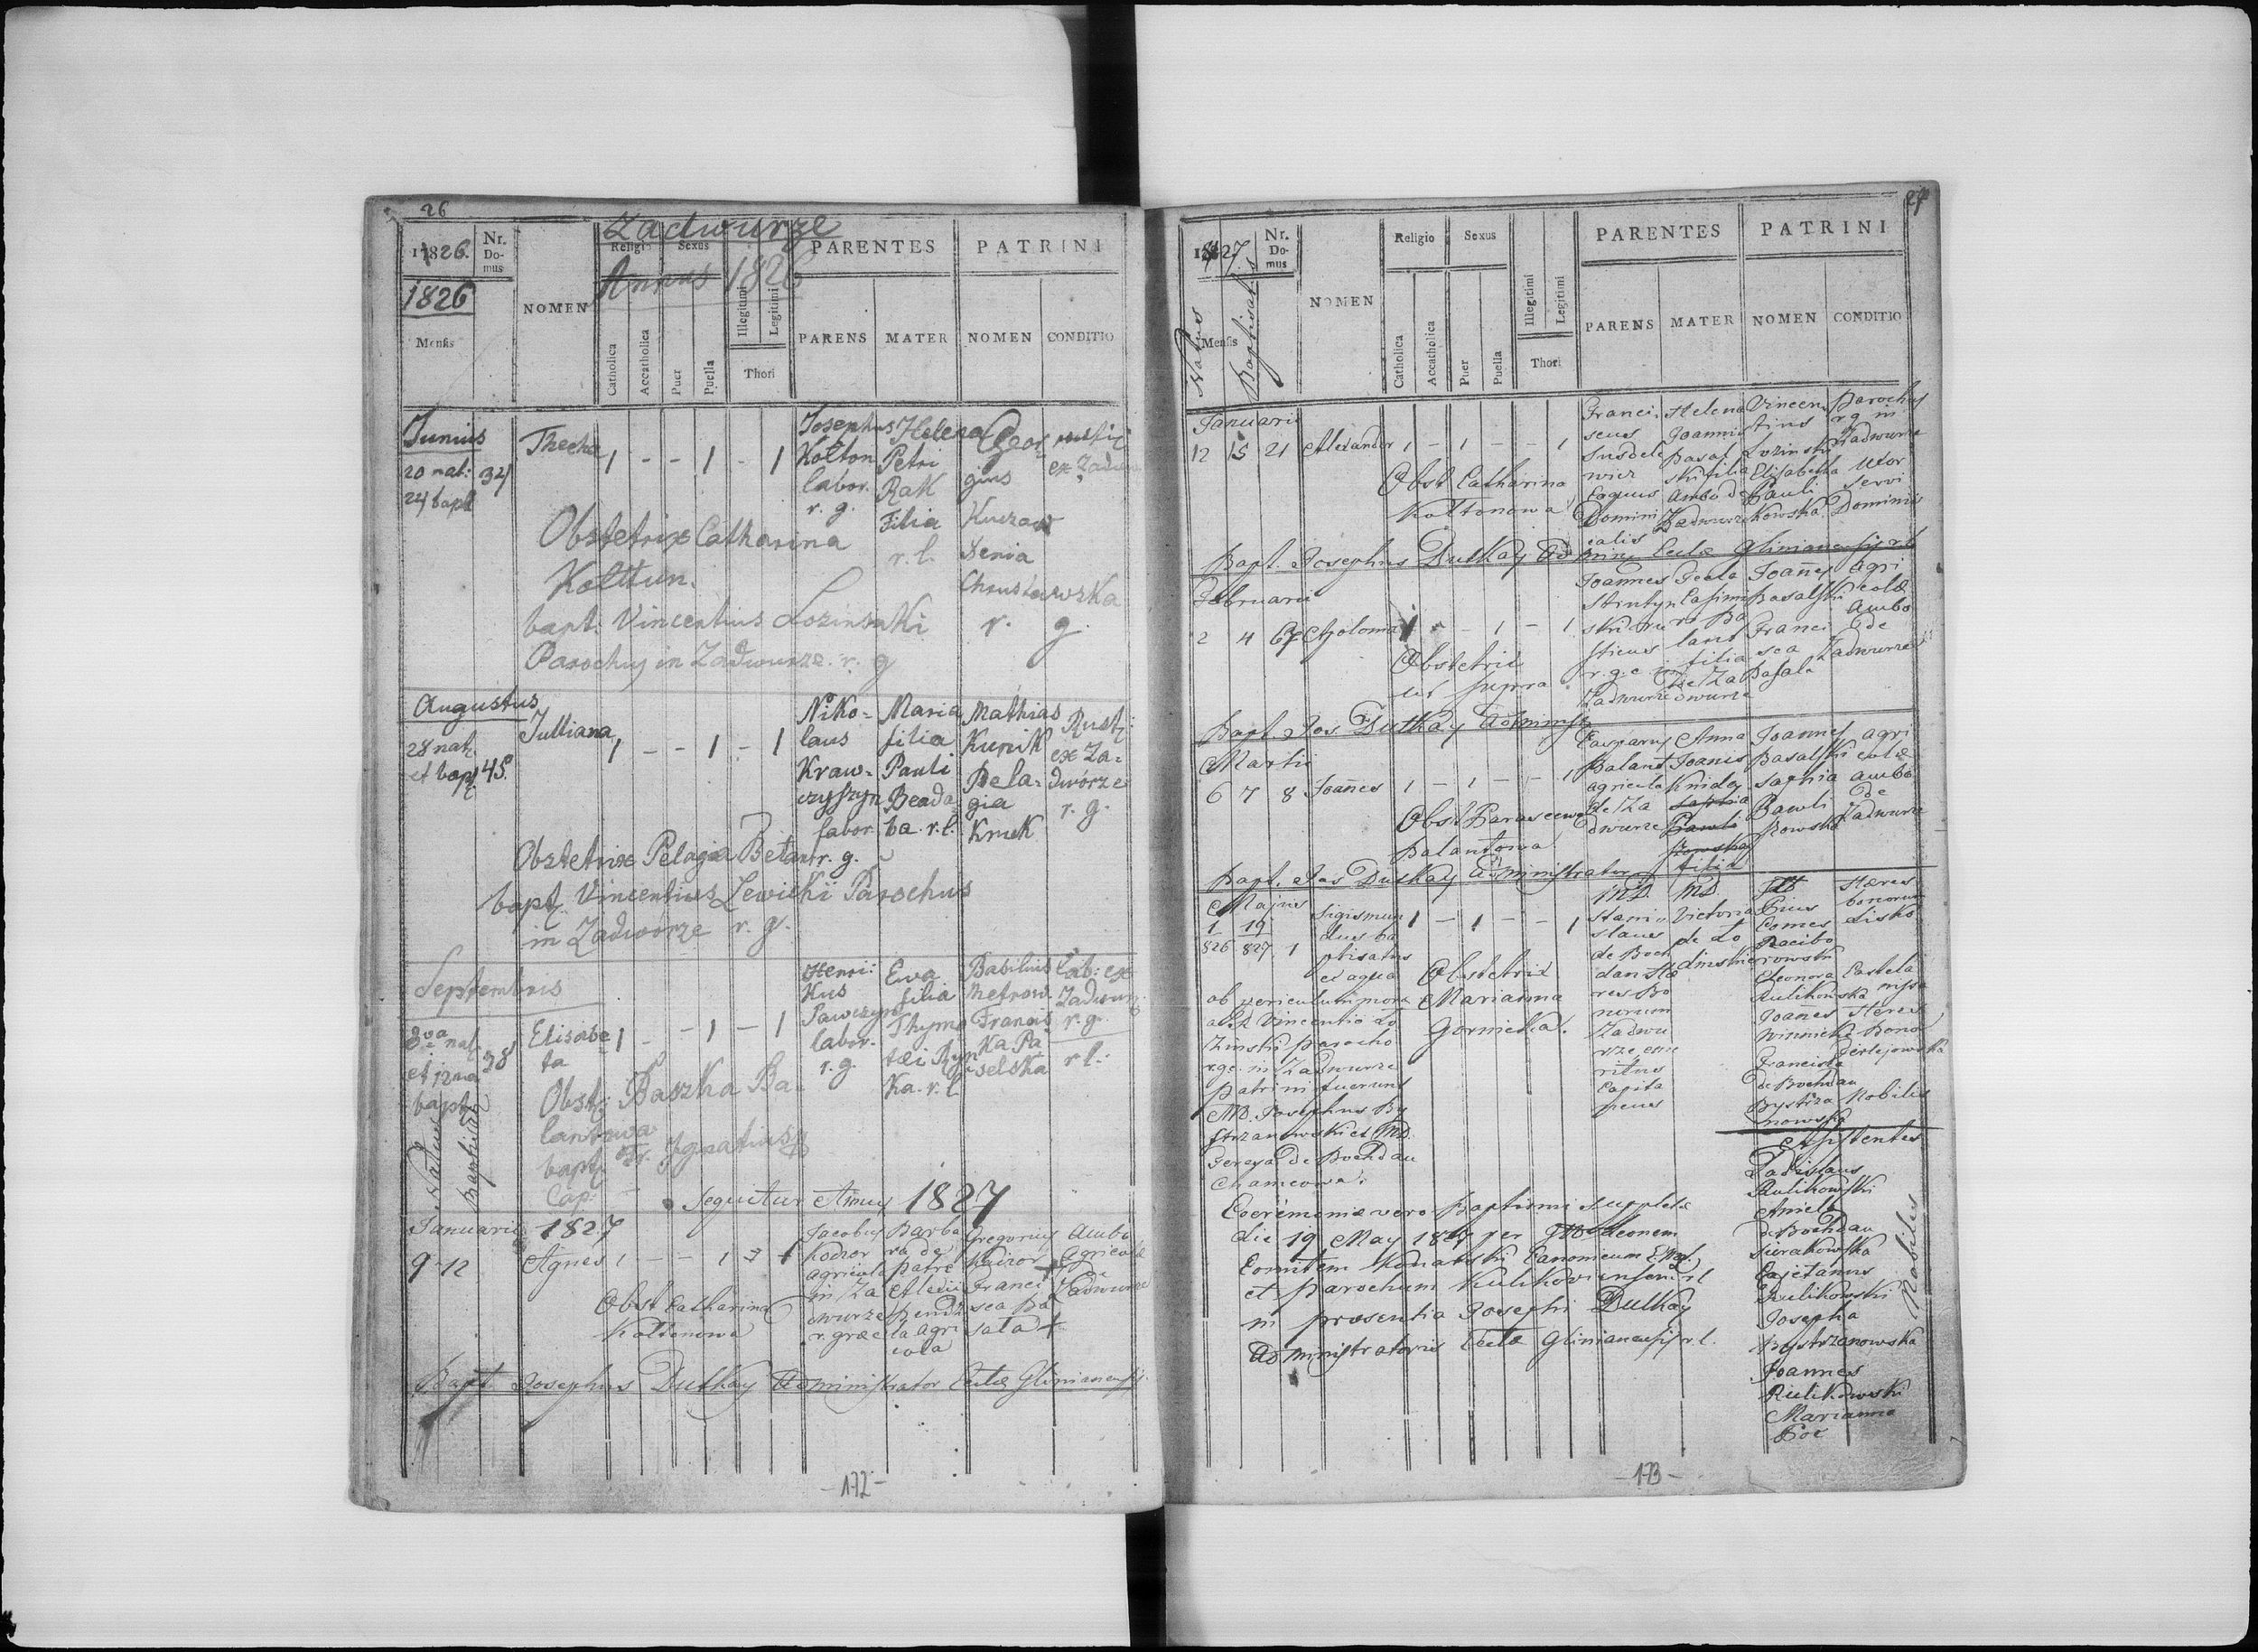 26
Zadwurze
Annus 1826
1826.
Nr. Do- mus
1826
Mensis
NOMEN
Religi
Sexus
Catholica
Accatholica
Puer
Puella
Illegitimi
Legitimi
Thori
PARENTES
PATRINI
PARENS
MATER
NOMEN
CONDITIO
Junius
20 nat: 34
24 bapt
Thecka 1 - - 1 - 1
Josephus
Kołton
labor.
r. g.
Helena
Petri
Rak
Filia
r. l.
Geor
gius
Kuczaw
Xenia
Chrustawska
r. g.
rustic
ex Zadwu
Obstetrix Catharina
Kołttun.
bapt: Vincentius Lozinski
Parochus in Zadwurze. r. g
Augustus
28 nat.
et bapt. 45.
Julliana 1 - - 1 - 1
Niko-
laus
Kraw-
czyszyn
labor.
r. g.
Maria
filia
Pauli
Beada
ba. r. l.
Mathias
Kupik
Pela-
gia
Kruk
Rusti
ex Za-
dwórze
r. g.
Obstetrix Pelagia Betan
bapt. Vincentius Lewicki Parochus
in Zadwórze r. g.
Septembris
8va nat.
et 12ma 38
bapt
Elisabe
ta 1 - - 1 - 1
Henri-
kus
Sawczysz
labor.
r. g.
Eva
filia
Thymo
tei Ryn
ka. r. l
Babilius
Metrow
Francis
ka Pa
selska
Lab: ex
Zadwurz
r. g.
r l.
Obst: Paszka Ba-
lantowa
bapt. Fr. Ignatius
Cap:
Natus
Baptisat
Sequitur Annus 1827
Januarii 1827
9 12 Agnes 1 - - 1 - 1
Jacobus
Kodzor
agricola
in Za
dwurze
r. græc
Barba
ra de
patre
Alexii
Bendz
la agri
cola
Gregorius
Kodzor
Franci
sca Ba
sala +
Ambo
agricolæ
de
Zadwurze
Obst Catharina
Koltonowa
Bapt. Josephus Dutkay Administrator Ecclæ Glinianensis
-172-
27
1827
Nr. Do- mus
Natus
Baptisatus
Mensis
NOMEN
Religio
Sexus
Catholica
Accatholica
Puer
Puella
Illegitimi
Legitimi
Thori
PARENTES
PATRINI
PARENS
MATER
NOMEN
CONDITIO
Januarii
12 15 21 Alexander 1 - 1 - - 1
Franci-
scus
Domini
calis
Helena
Joannis
Basal
ski filia
ambo de
Zadwurze
Vincen
tius
Lozinski
Elisabetha
Pauli
kowska
Parochus
r g in
Zadwurze
Uxor
servi
Dominic
Obst Catharina
Koltonowa
Bapt. Josephus Dutkay Admin: Ecclæ Glinianensis r l
Februarii
2 4 67 Apolonia 1 - - 1 - 1
Joannes
sticus
r. g. e in
Zadwurze
Tecla
Casimi
ri Ba
lant
filia
de Za
dwurze
Joannes
Basalski
Franci
sca
Basala
agri
colæ
ambo
de
Zadwurze
Obstetrix
ut supra
Bapt Jos Dutkay Administ
Martii
6 7 8 Joannes 1 - 1 - - 1
Casparus
Balant
agricola
de Za
dwurze
Anna
Joanis
filia
Joannes
Basalski
Saphia
Pawli
kowska
agri
colæ
ambo
de
Zadwurze
Obst Parascewa
Balantowa
Bapt. Jos Dutkay Administrator
Majus
1 19
826 827 1
Sigismun
dus ba
ptisatus
ex aqua 1 - 1 - - 1
MD.
Stani-
slaus
de Boch
dan Hæ
res Bo
norum
Zadwu
rze eme
ritus
Capita
neus
MD.
Victoria
de Ło
dinskie
Pius
Comes
Racibo
rowski
Eleonora
Rulikowska
Joannes
Winnicki
Francisca
de Bochdan
Bystrza
nowska
Hæres
bonorum
Lisko
Castela
nissa
Heres
Bono
Nobiles
ab periculum moræ
a Rd Vincentio Lo
zinski parocho
r. g. in Zadwurze
patrini fuerunt
MD. Josephus By
strzanowski et MD.
Teresa de Bochdan
Obstetrix
Marianna
Gornicka.
Ceremoniæ vero Baptismi suppletæ
die 19 May 1827 per Gedeonem
Comitem Konarski Canonicum
et parochum Kulikoviensem r l
in præsentia Josephi Dutkay
Administratoris Ecclæ Glinianensis r. l.
Assistentes
Ladislaus
Rulikowski
Aniela
de Bochdan
Sierakowska
Cajetanus
Rulikowski
Josepha
Bystrzanowska
Joannes
Rulikowski
Marianna
Nobiles
-173-